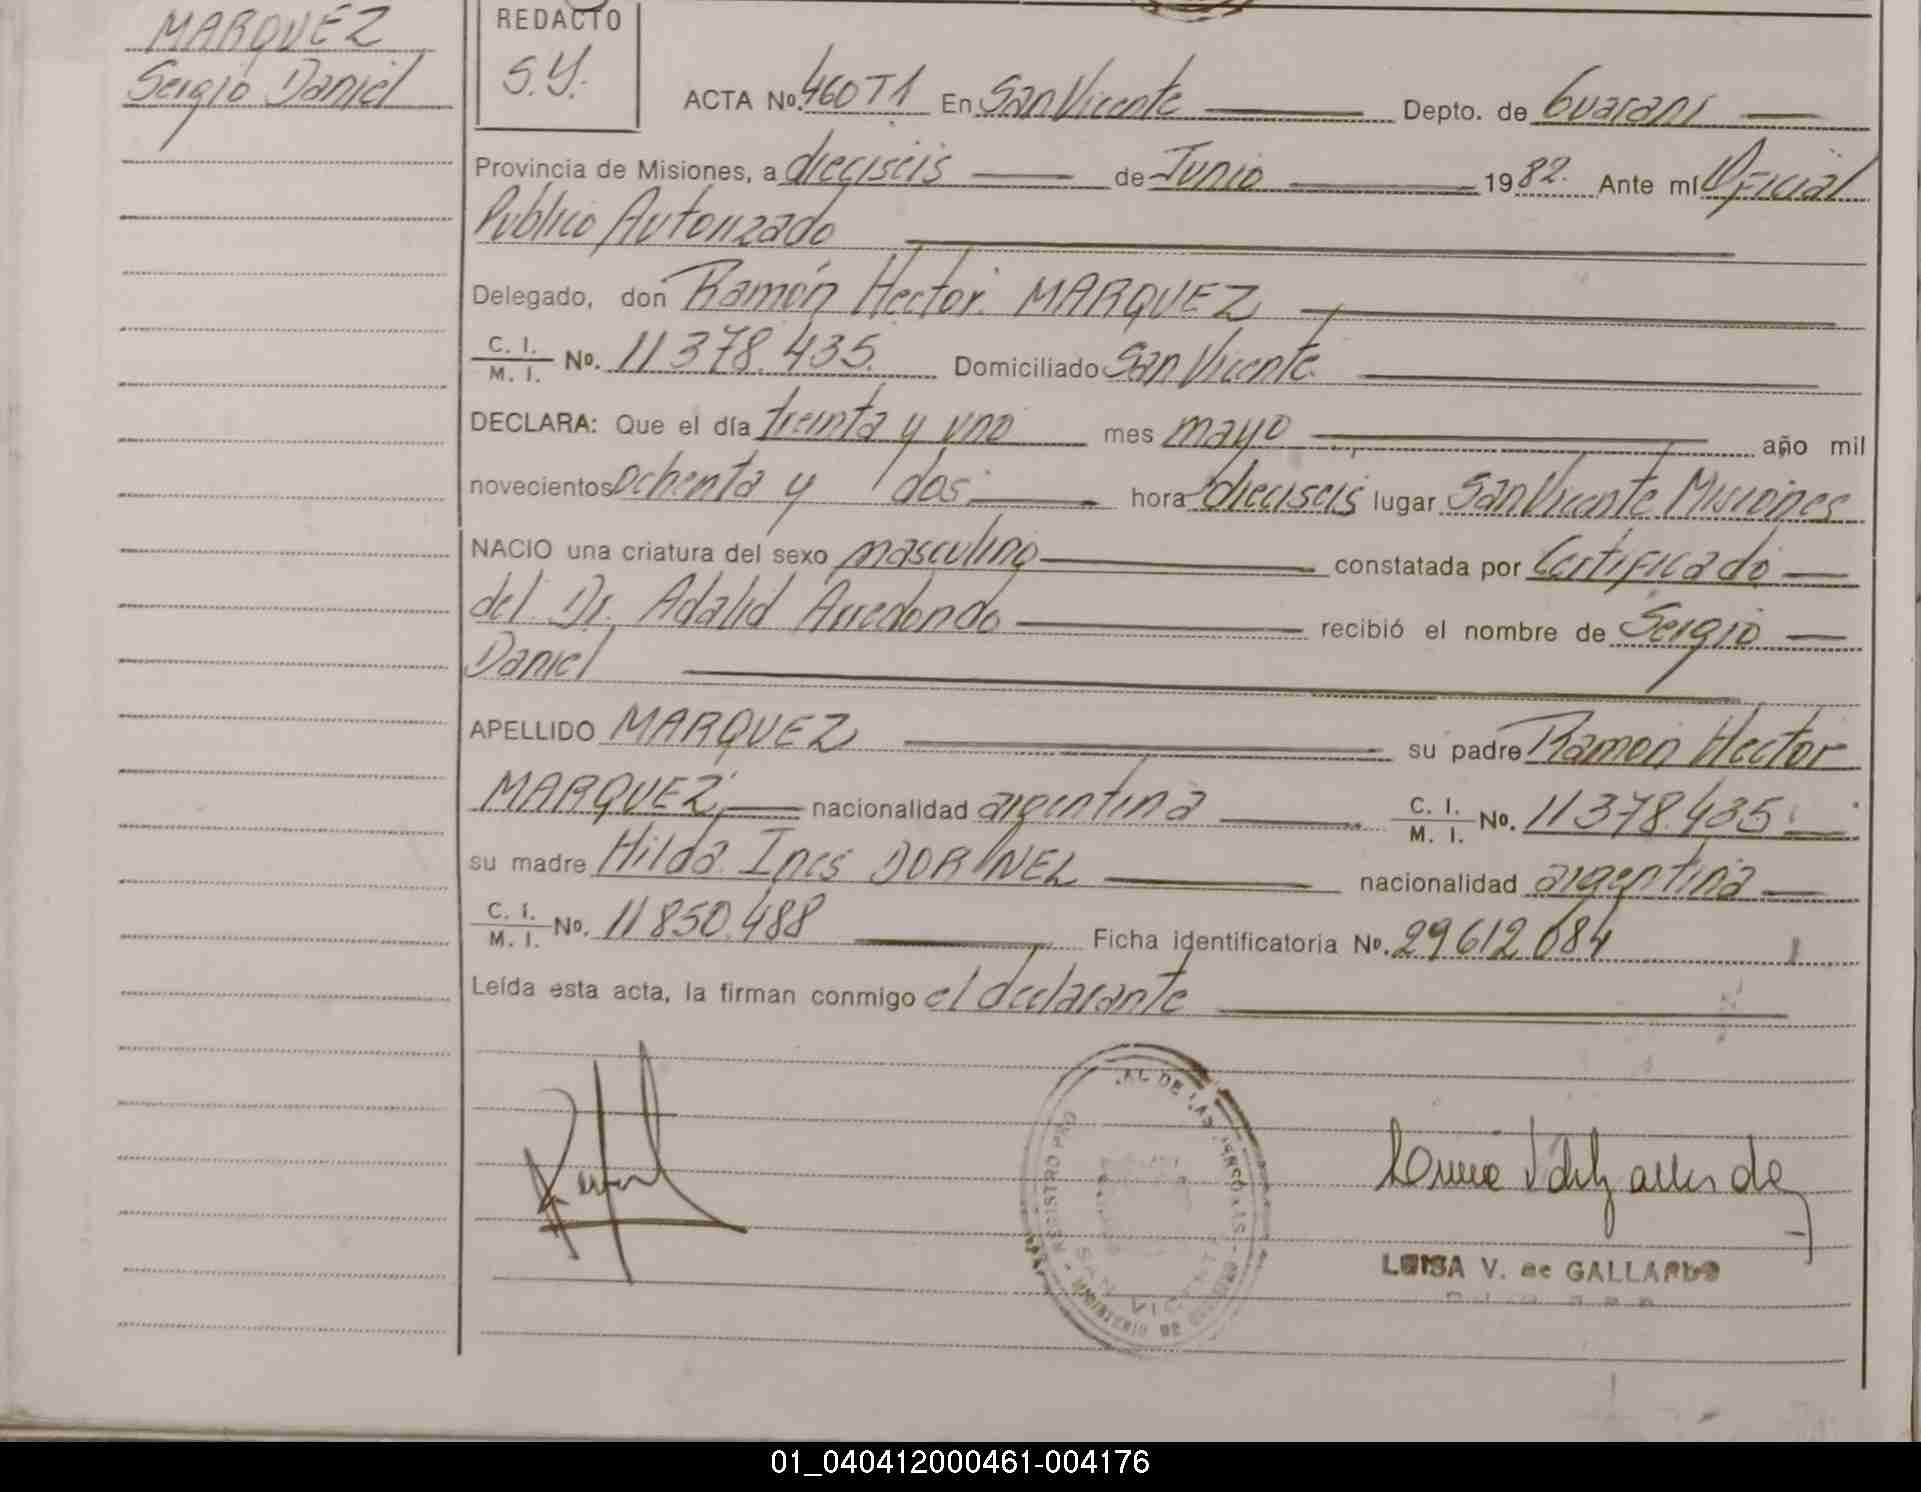 MARQUEZ
Sergio Daniel
REDACTO
S.Y.
ACTA No. 460T1 En San Vicente Depto. de Guarani
Provincia de Misiones, a dieciseis de Junio 1982. Ante mí Oficial
Publico Autorizado
Delegado, don Ramón Hector MARQUEZ
C. I. / M. I. No. 11378.435. Domiciliado San Vicente.
DECLARA: Que el día treinta y uno mes mayo año mil
novecientos ochenta y dos hora dieciseis lugar San Vicente Misiones
NACIO una criatura del sexo masculino constatada por Certificado
del Dr. Adalid Arredondo recibió el nombre de Sergio
Daniel
APELLIDO MARQUEZ su padre Ramon Hector
MARQUEZ nacionalidad argentina C. I. / M. I. No. 11378.435
su madre Hilda Ines DORINEL nacionalidad argentina
C. I. / M. I. No. 11850.488 Ficha identificatoria No. 29612084
Leída esta acta, la firman conmigo el declarante
AL DE LAS PERSONAS
REGISTRO PRO
SAN VICENTE
LUISA V. de GALLARDO
01_040412000461-004176